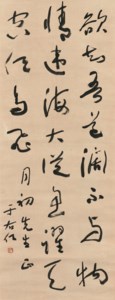 欲知吾道廓不與物
情違海大從魚躍天
空任鳥飛
月初先生正
于右任